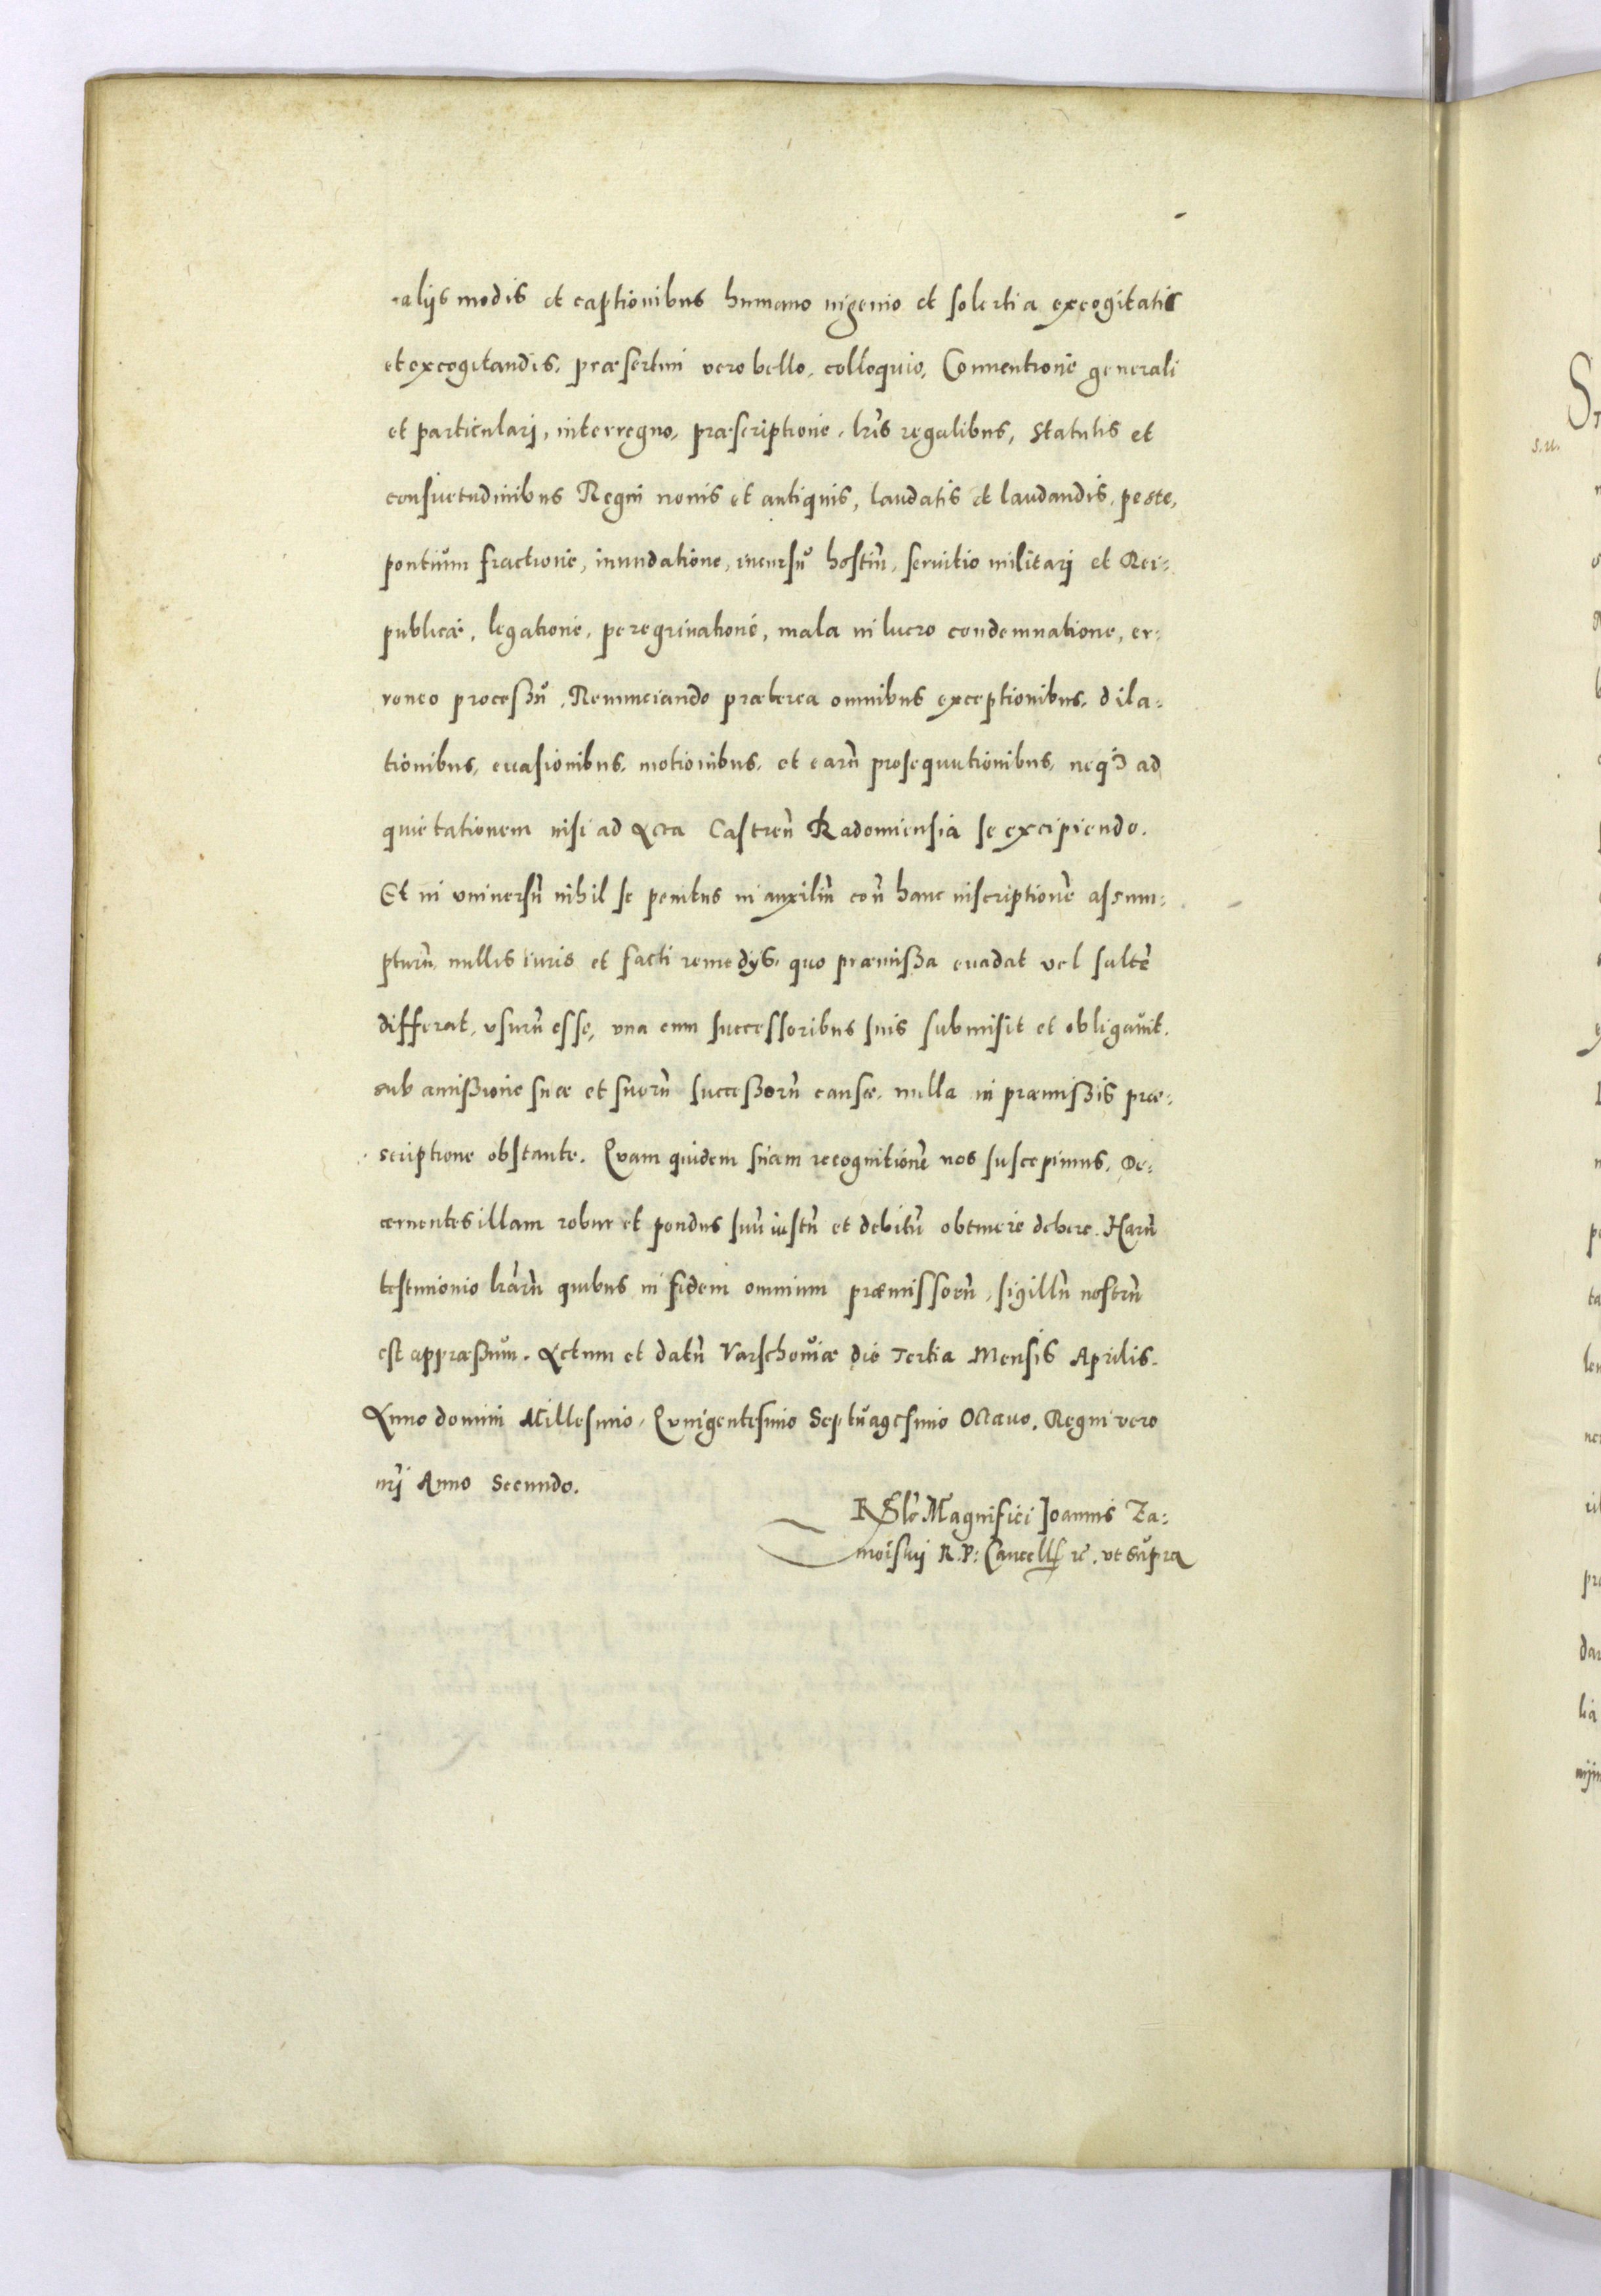 alijs modis et captionibus humano ingenio et solertia excogitatis
et excogitandis, præsertim vero bello, colloquio, Conuentione generali
et particularj, interregno, præscriptione, lr̃is regalibus, Statutis et
consuetudinibus Regni nouis et antiquis, laudatis et laudandis, peste,
pontium fractione, inundatione, incursu hostiũ, seruitio militarj et Rei-
publicæ, legatione, peregrinatione, mala in lucro condemnatione, er-
roneo processu, Renunciando præterea omnibus exceptionibus, dila-
tionibus, euasionibus, motionibus, et earũ prosequutionibus, neqȝ ad
quietationem nisi ad Acta Castreñ Radomiensia se excipiendo.
Et in vniuersũ nihil se penitus in auxiliũ coñ hanc inscriptionẽ assum-
pturũ, nullis iuris et facti remedijs, quo præmissa euadat vel saltẽ
differat, vsurũ esse, vna cum successoribus suis submisit et obligauit.
sub amissione suæ et suorũ successorũ causæ, nulla in præmissis præ-
scriptione obstante. Quam quidem suam recognitionẽ nos suscepimus, De-
cernentes illam robur et pondus suũ iustũ et debitũ obtinere debere. Harũ
testimonio lr̃arũ quibus in fidem omnium præmissorũ, sigillũ nostrũ
est appræssum. Actum et datũ Varschouiæ die Tertia Mensis Aprilis.
Anno domini Millesimo, Quingentesimo Septuagesimo Octauo. Regni vero
nr̃j Anno Secundo.
Rl̃o Magnifici Joannis Za-
moiskij R. P: Cancell rẽ. vt supra
S.u.